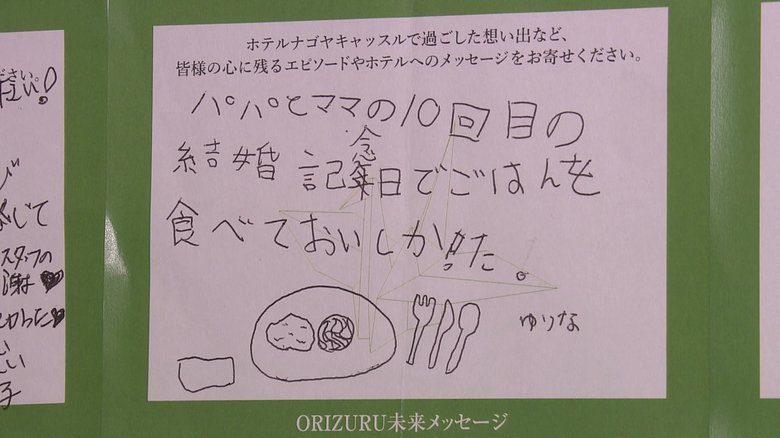 ホテルナゴヤキャッスルで過ごした想い出など、
皆様の心に残るエピソードやホテルへのメッセージをお寄せください。
パパとママの10回目の
結婚記念日でごはんを
食べておいしかった。
ゆりな
ORIZURU未来メッセージ
ださい。
じて
スタッフの
謝♥
かった♥
い
子